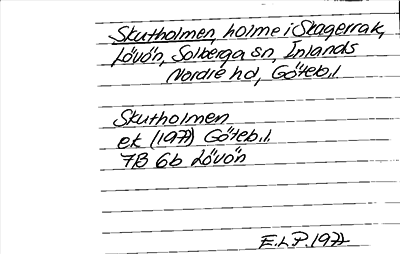 Skutholmen, holme i Skagerrak,
Lövön, Solberga sn, Inlands
Nordre hd, Göteb.l.
Skutholmen
ek (1977) Göteb.l.
7B 6b Lövön
E.L.P. 1977